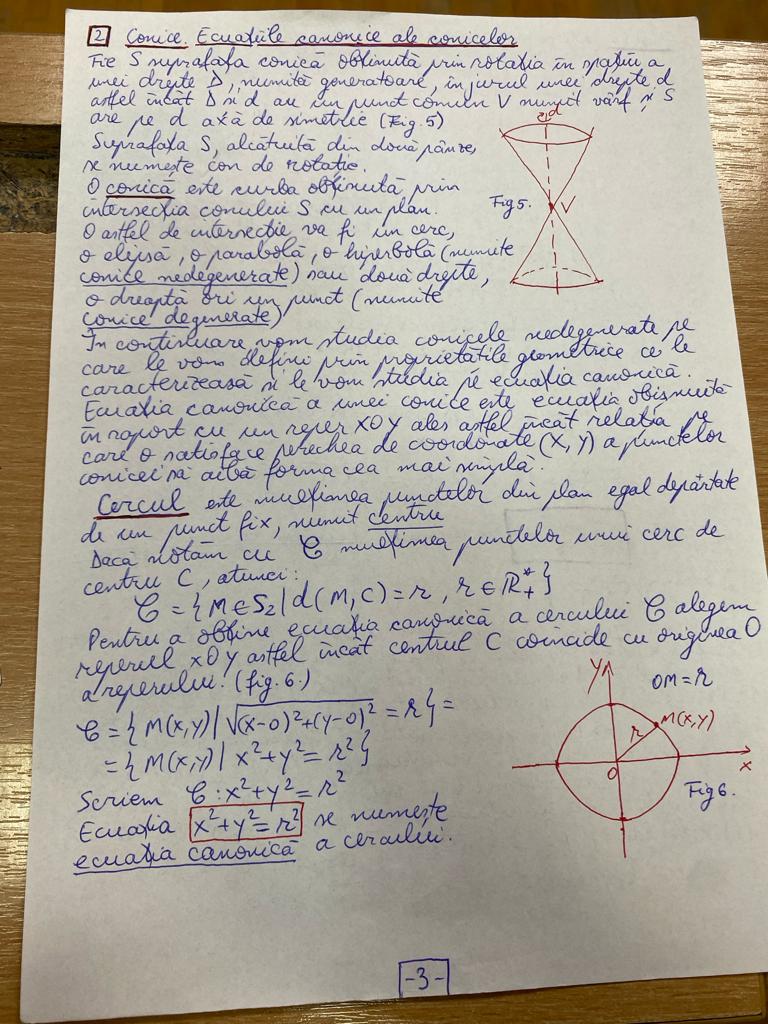 2 Conice. Ecuațiile canonice ale conicelor
Fie S suprafața conică obținută prin rotația în spațiu a
unei drepte Δ, numită generatoare, în jurul unei drepte d
astfel încât Δ și d au un punct comun V numit vârf și S
are pe d axă de simetrie (Fig. 5)
Suprafața S, alcătuită din două pânze,
se numește con de rotație.
O conică este curba obținută prin
intersecția conului S cu un plan.
O astfel de intersecție va fi un cerc,
o elipsă, o parabolă, o hiperbolă (numite
conice nedegenerate) sau două drepte,
o dreaptă ori un punct (numite
conice degenerate)
d
V
Fig 5.
În continuare vom studia conicele nedegenerate pe
care le vom defini prin proprietățile geometrice ce le
caracterizează și le vom studia pe ecuația canonică.
Ecuația canonică a unei conice este ecuația obișnuită
în raport cu un reper XOY ales astfel încât relația pe
care o satisface perechea de coordonate (X, Y) a punctelor
conicei să aibă forma cea mai simplă.
Cercul este mulțimea punctelor din plan egal depărtate
de un punct fix, numit centru
Dacă notăm cu 𝒞 mulțimea punctelor unui cerc de
centru C, atunci:
𝒞 = {M ∈ S₂ | d(M, C) = r, r ∈ ℝ₊*}
Pentru a obține ecuația canonică a cercului 𝒞 alegem
reperul xOy astfel încât centrul C coincide cu originea O
a reperului. (fig. 6.)
𝒞 = {M(x,y) | √((x-0)²+(y-0)²) = r} =
= {M(x,y) | x²+y² = r²}
Scriem 𝒞 : x²+y² = r²
Ecuația x²+y² = r² se numește
ecuația canonică a cercului.
y
OM = r
M(x,y)
r
O
x
Fig 6.
-3-